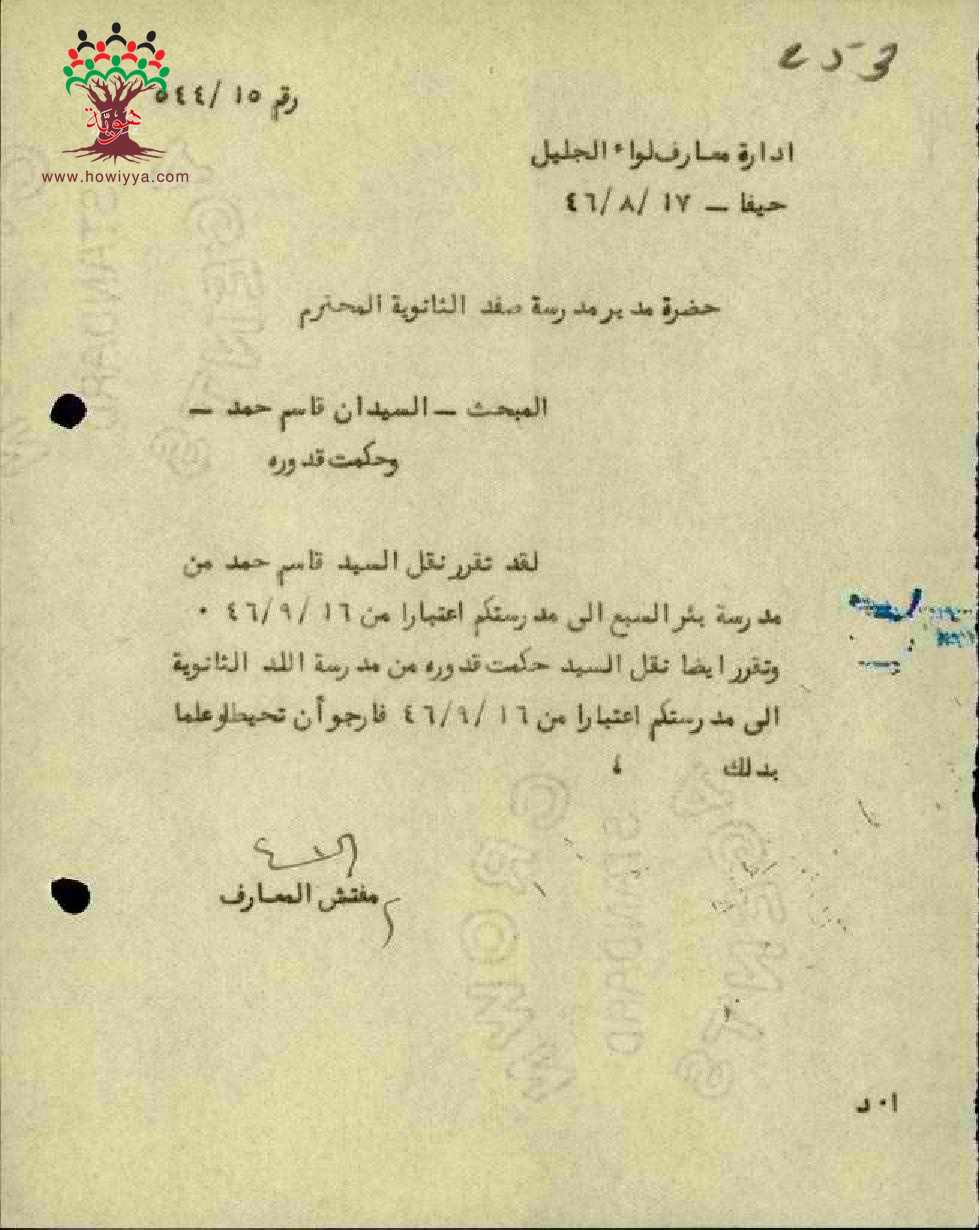 253
هويّة
www.howiyya.com
رقم ١٥ /٥٤٤
ادارة معارف لواء الجليل
حيفا — ١٧ /٨ /٤٦
حضرة مدير مدرسة صفد الثانوية المحترم
المبحث — السيدان قاسم حمد —
وحكمت قدوره
لقد تقرر نقل السيد قاسم حمد من
مدرسة بئر السبع الى مدرستكم اعتبارا من ١٦ /٩ /٤٦ ٠
وتقرر ايضا نقل السيد حكمت قدوره من مدرسة اللد الثانوية
الى مدرستكم اعتبارا من ١٦ /٩ /٤٦ فارجو أن تحيطوا علما
بذلك ،
مفتش المعارف
ا٠د